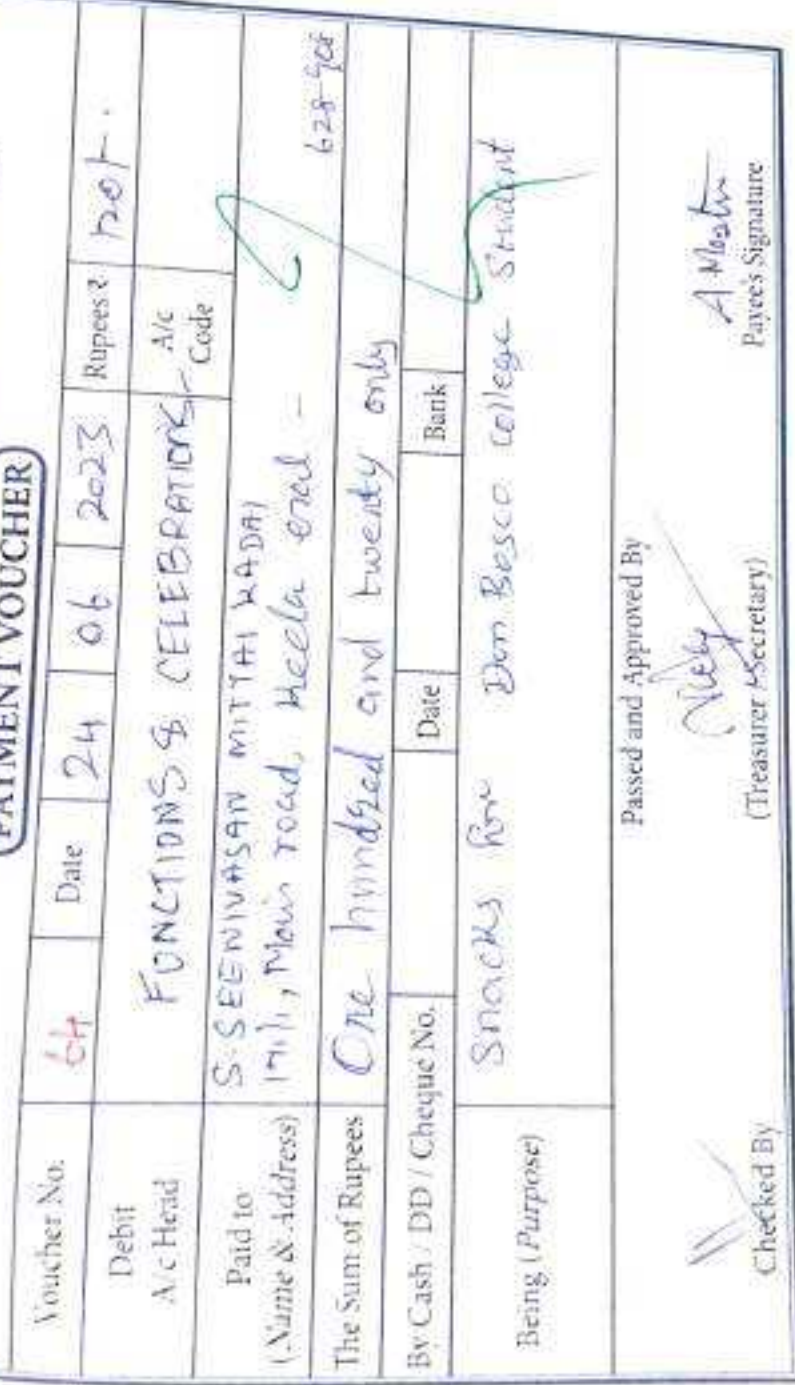 PAYMENT VOUCHER
Voucher No. 64 Date 24 06 2023 Rupees ₹ 120/-
Debit A/c Head FUNCTIONS & CELEBRATIONS A/c Code
Paid to (Name & Address) S. SEENIVASAN MITTAI KADAI
Main road, Keela eral - 628 908
The Sum of Rupees One hundred and twenty only
By Cash / DD / Cheque No. Date Bank
Being (Purpose) Snacks for Don Bosco College Student
Passed and Approved By
Checked By (Treasurer / Secretary) Payee's Signature